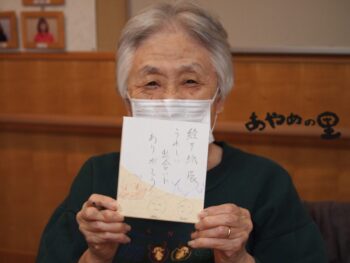 絵手紙展
うれしい
出会い
ありがとう
あやめの里